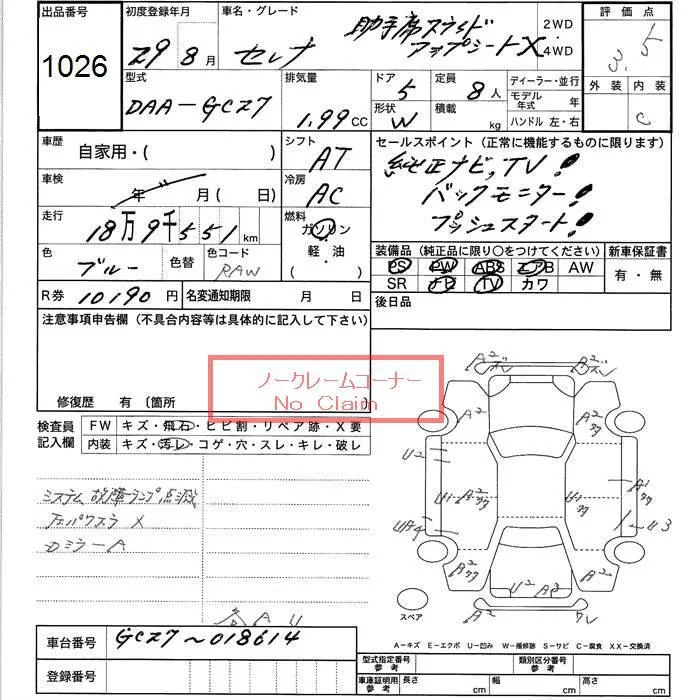 出品番号 初度登録年月 車名・グレード 評価点
1026 29年 8月 セレナ 助手席スライドアップシートX 2WD・4WD 3.5
型式 排気量 ドア 定員 ディーラー・並行 外装 内装
DAA-GCZ7 1.99 CC 5 8人 モデル年式 年 C
形状 積載 ハンドル 左・右
W kg
車歴 自家用・( ) シフト AT セールスポイント (正常に機能するものに限ります)
純正ナビ,TV!
車検 年 月(日) 冷房 AC バックモニター!
プッシュスタート!
走行 18万9千551km 燃料 ガソリン・軽・油・( )
装備品 (純正品に限り○をつけてください) 新車保証書
色 ブルー 色替 色コード RAW PS PW ABS エアB AW 有・無
SR ナビ TV カワ
R券 10190円 名変通知期限 月 日 後日品
注意事項申告欄 (不具合内容等は具体的に記入して下さい)
ノークレームコーナー
No Claim
修復歴 有 (箇所
検査員記入欄 FW キズ・飛石・ヒビ割・リペア跡・X要
内装 キズ・汚レ・コゲ・穴・スレ・キレ・破レ
システム故障ランプ点滅
パワスラ X
ミラーA
各 A U
A² A² A² A² A² A² A²
U² U¹ U¹ U3 A¹ U² A3
スペア
車台番号 GCZ7~018614
A-キズ E-エクボ U-凹み W-補修跡 S-サビ C-腐食 XX-交換済
登録番号
型式指定番号 参考 類別区分番号 参考
車庫証明用 参考 長さ cm 幅 cm 高さ cm